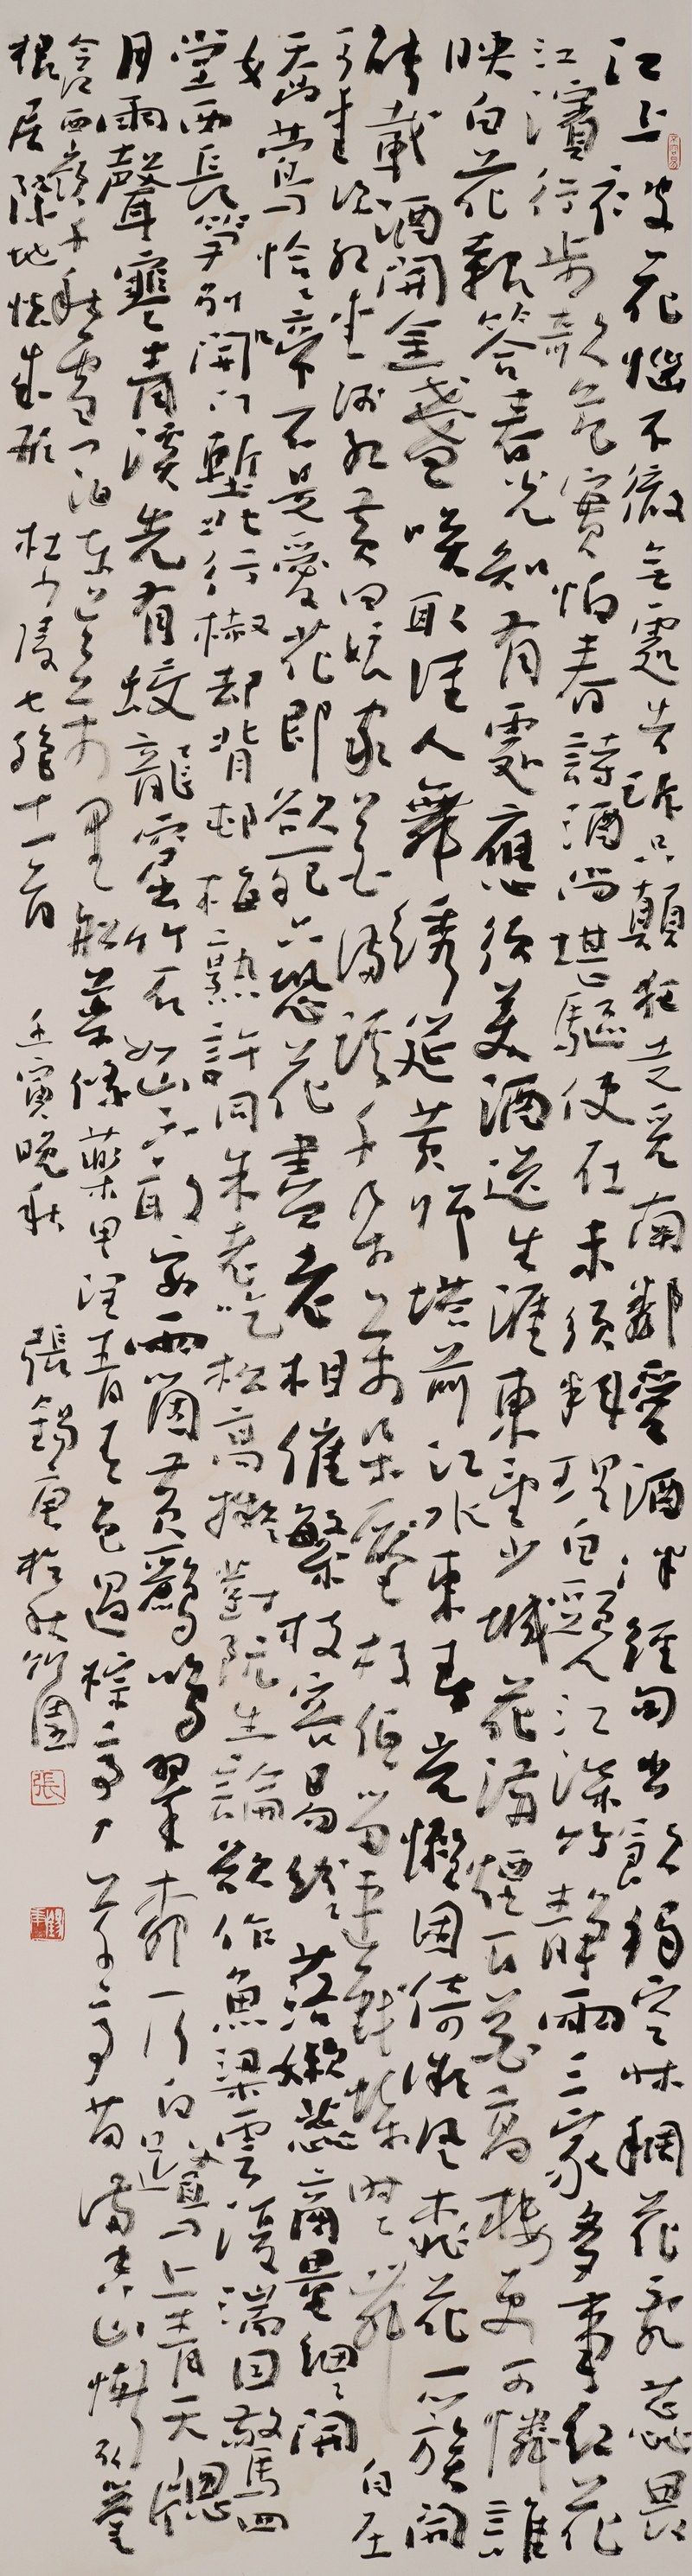 江上被花惱不徹無處告訴只顛狂走覓南鄰愛酒伴經旬出飲獨空牀稠花亂蕊畏
江濱行步欹危實怕春詩酒尚堪驅使在未須料理白頭人江深竹靜兩三家多事紅花
映白花報答春光知有處應須美酒送生涯東望少城花滿煙百花高樓更可憐誰
能載酒開金盞喚取佳人舞繡筵黃師塔前江水東春光懶困倚微風桃花一簇開
可愛深紅愛淺紅黃四娘家花滿蹊千朵萬朵壓枝低留連戲蝶時時舞自在
嬌鶯恰恰啼不是愛花即欲死只恐花盡老相催繁枝容易紛紛落嫩蕊商量細細開
堂西長筍別開門塹北行椒却背村梅熟許同朱老吃松高擬對阮生論欲作魚梁雲復湍因驚四
月雨聲寒青溪先有蛟龍窟竹石如山不敢安兩個黃鸝鳴翠柳一行白鷺上青天窗
含西嶺千秋雪門泊東吳萬里船藥條藥甲潤青青色過棕亭入草亭苗滿空山慚取譽
根居隙地怯成形 杜少陵七絕十一首 壬寅晚秋 張錫庚於秋竹園
張
錫庚